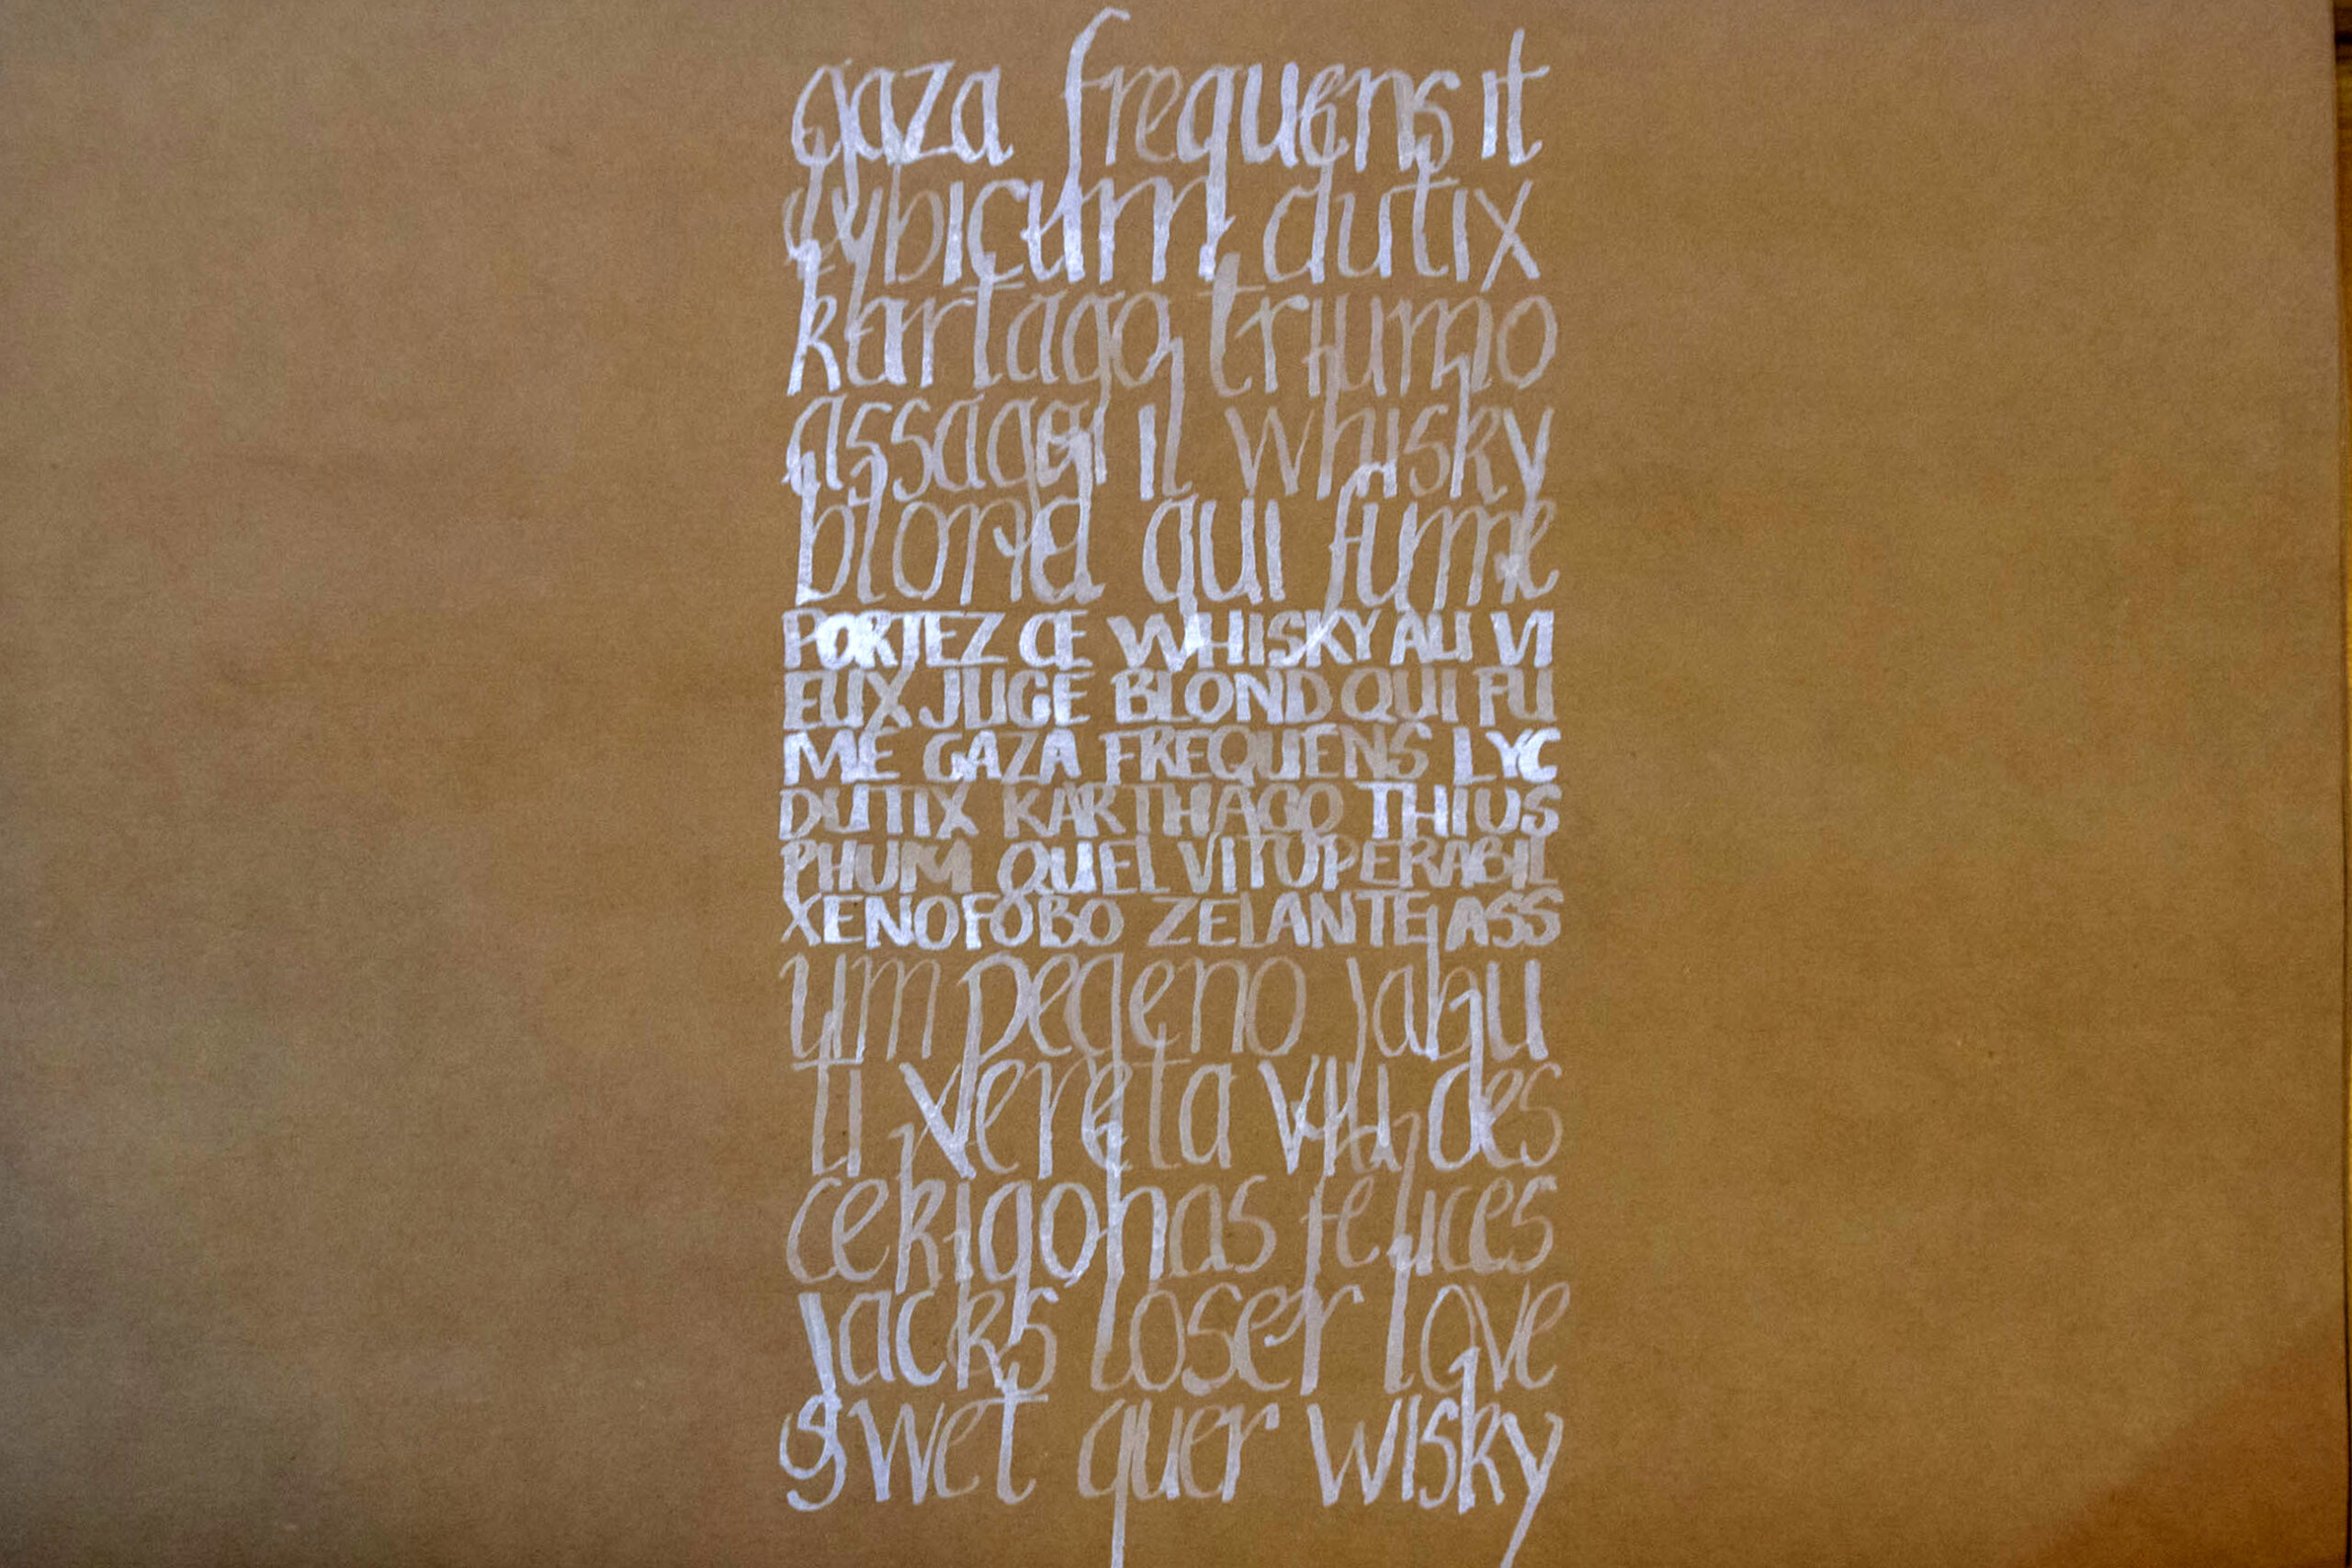 gaza frequens it
lybicum dutix
kartago triumo
assaggi il whisky
blond qui fume
PORTEZ CE WHISKY AU VI
EUX JUGE BLOND QUI FU
ME GAZA FREQUENS LYC
DUTIX KARTHAGO THIUS
PHUM QUEL VITUPERABIL
XENOFOBO ZELANTE ASS
um pegeno jabu
ti vereta viu des
cekigonas felices
jacks loser love
swet quer wisky